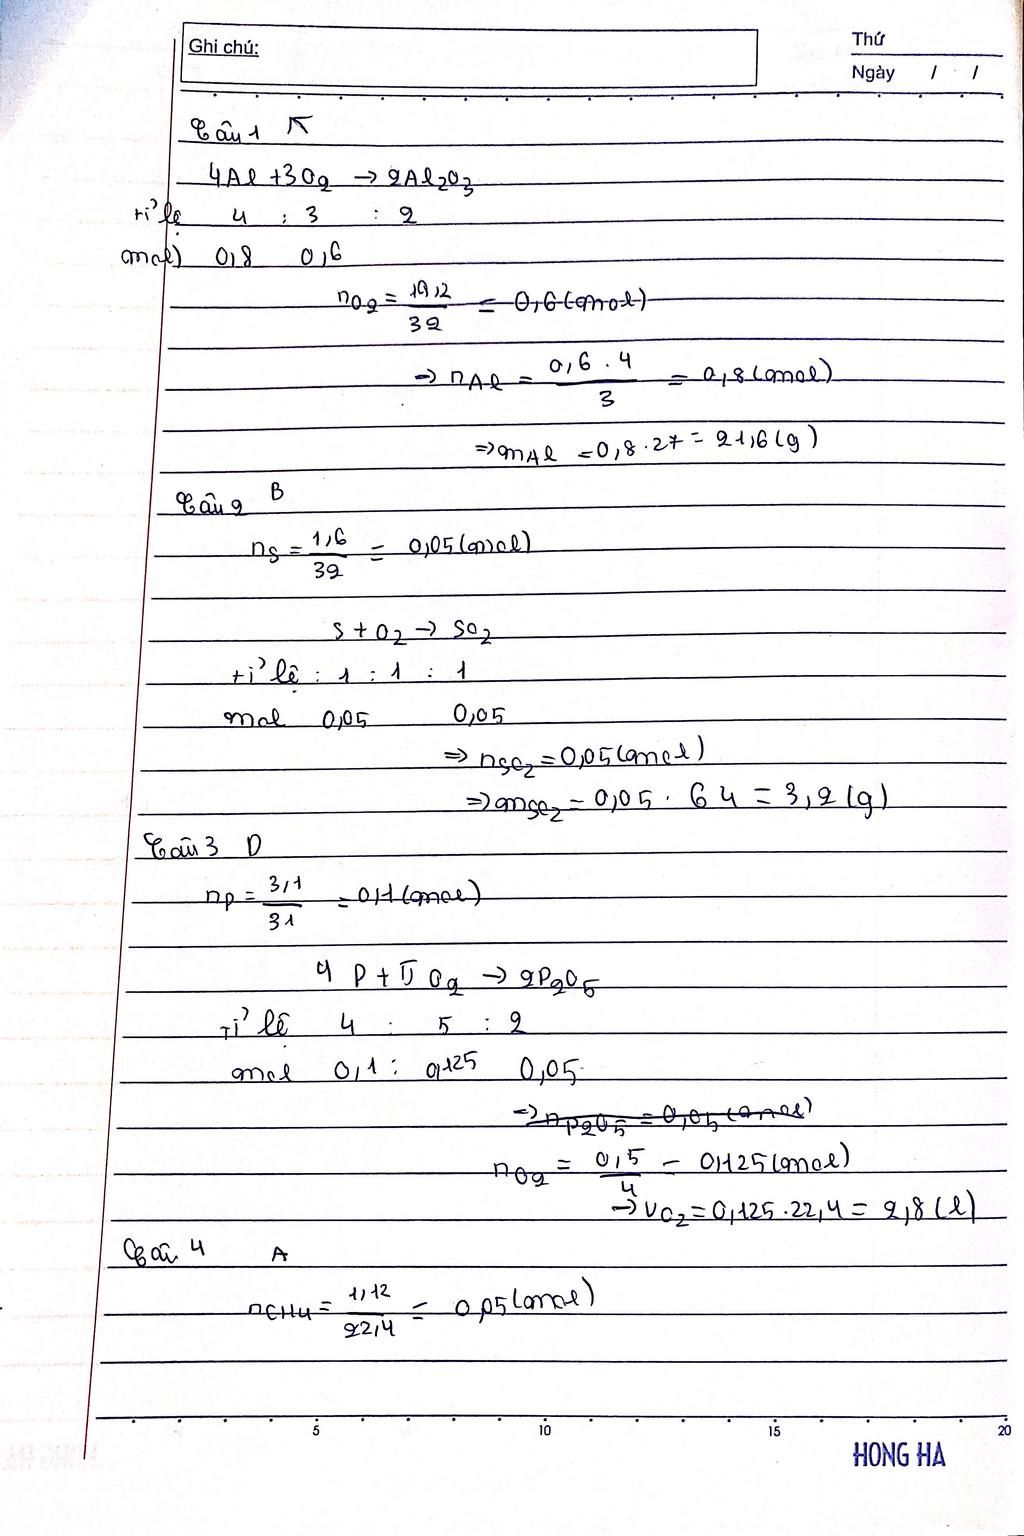 Ghi chú:
Thứ
Ngày / /
Câu 1 A
4Al + 3O2 → 2Al2O3
tỉ lệ 4 : 3 : 2
mol) 0,8 0,6
nO2 = 19,2/32 = 0,6 (mol)
→ nAl = 0,6 . 4/3 = 0,8 (mol)
⇒ mAl = 0,8 . 27 = 21,6 (g)
Câu 2 B
nS = 1,6/32 = 0,05 (mol)
S + O2 → SO2
tỉ lệ : 1 : 1 : 1
mol 0,05 0,05
⇒ nSO2 = 0,05 (mol)
⇒ mSO2 = 0,05 . 64 = 3,2 (g)
Câu 3 D
nP = 3,1/31 = 0,1 (mol)
4 P + 5 O2 → 2P2O5
Tỉ lệ 4 : 5 : 2
mol 0,1 : 0,125 0,05
⇒ nP2O5 = 0,05 (mol)
nO2 = 0,5/4 = 0,125 (mol)
→ VO2 = 0,125 . 22,4 = 2,8 (l)
Câu 4 A
nCH4 = 1,12/22,4 = 0,05 (mol)
5 10 15 20
HONG HA